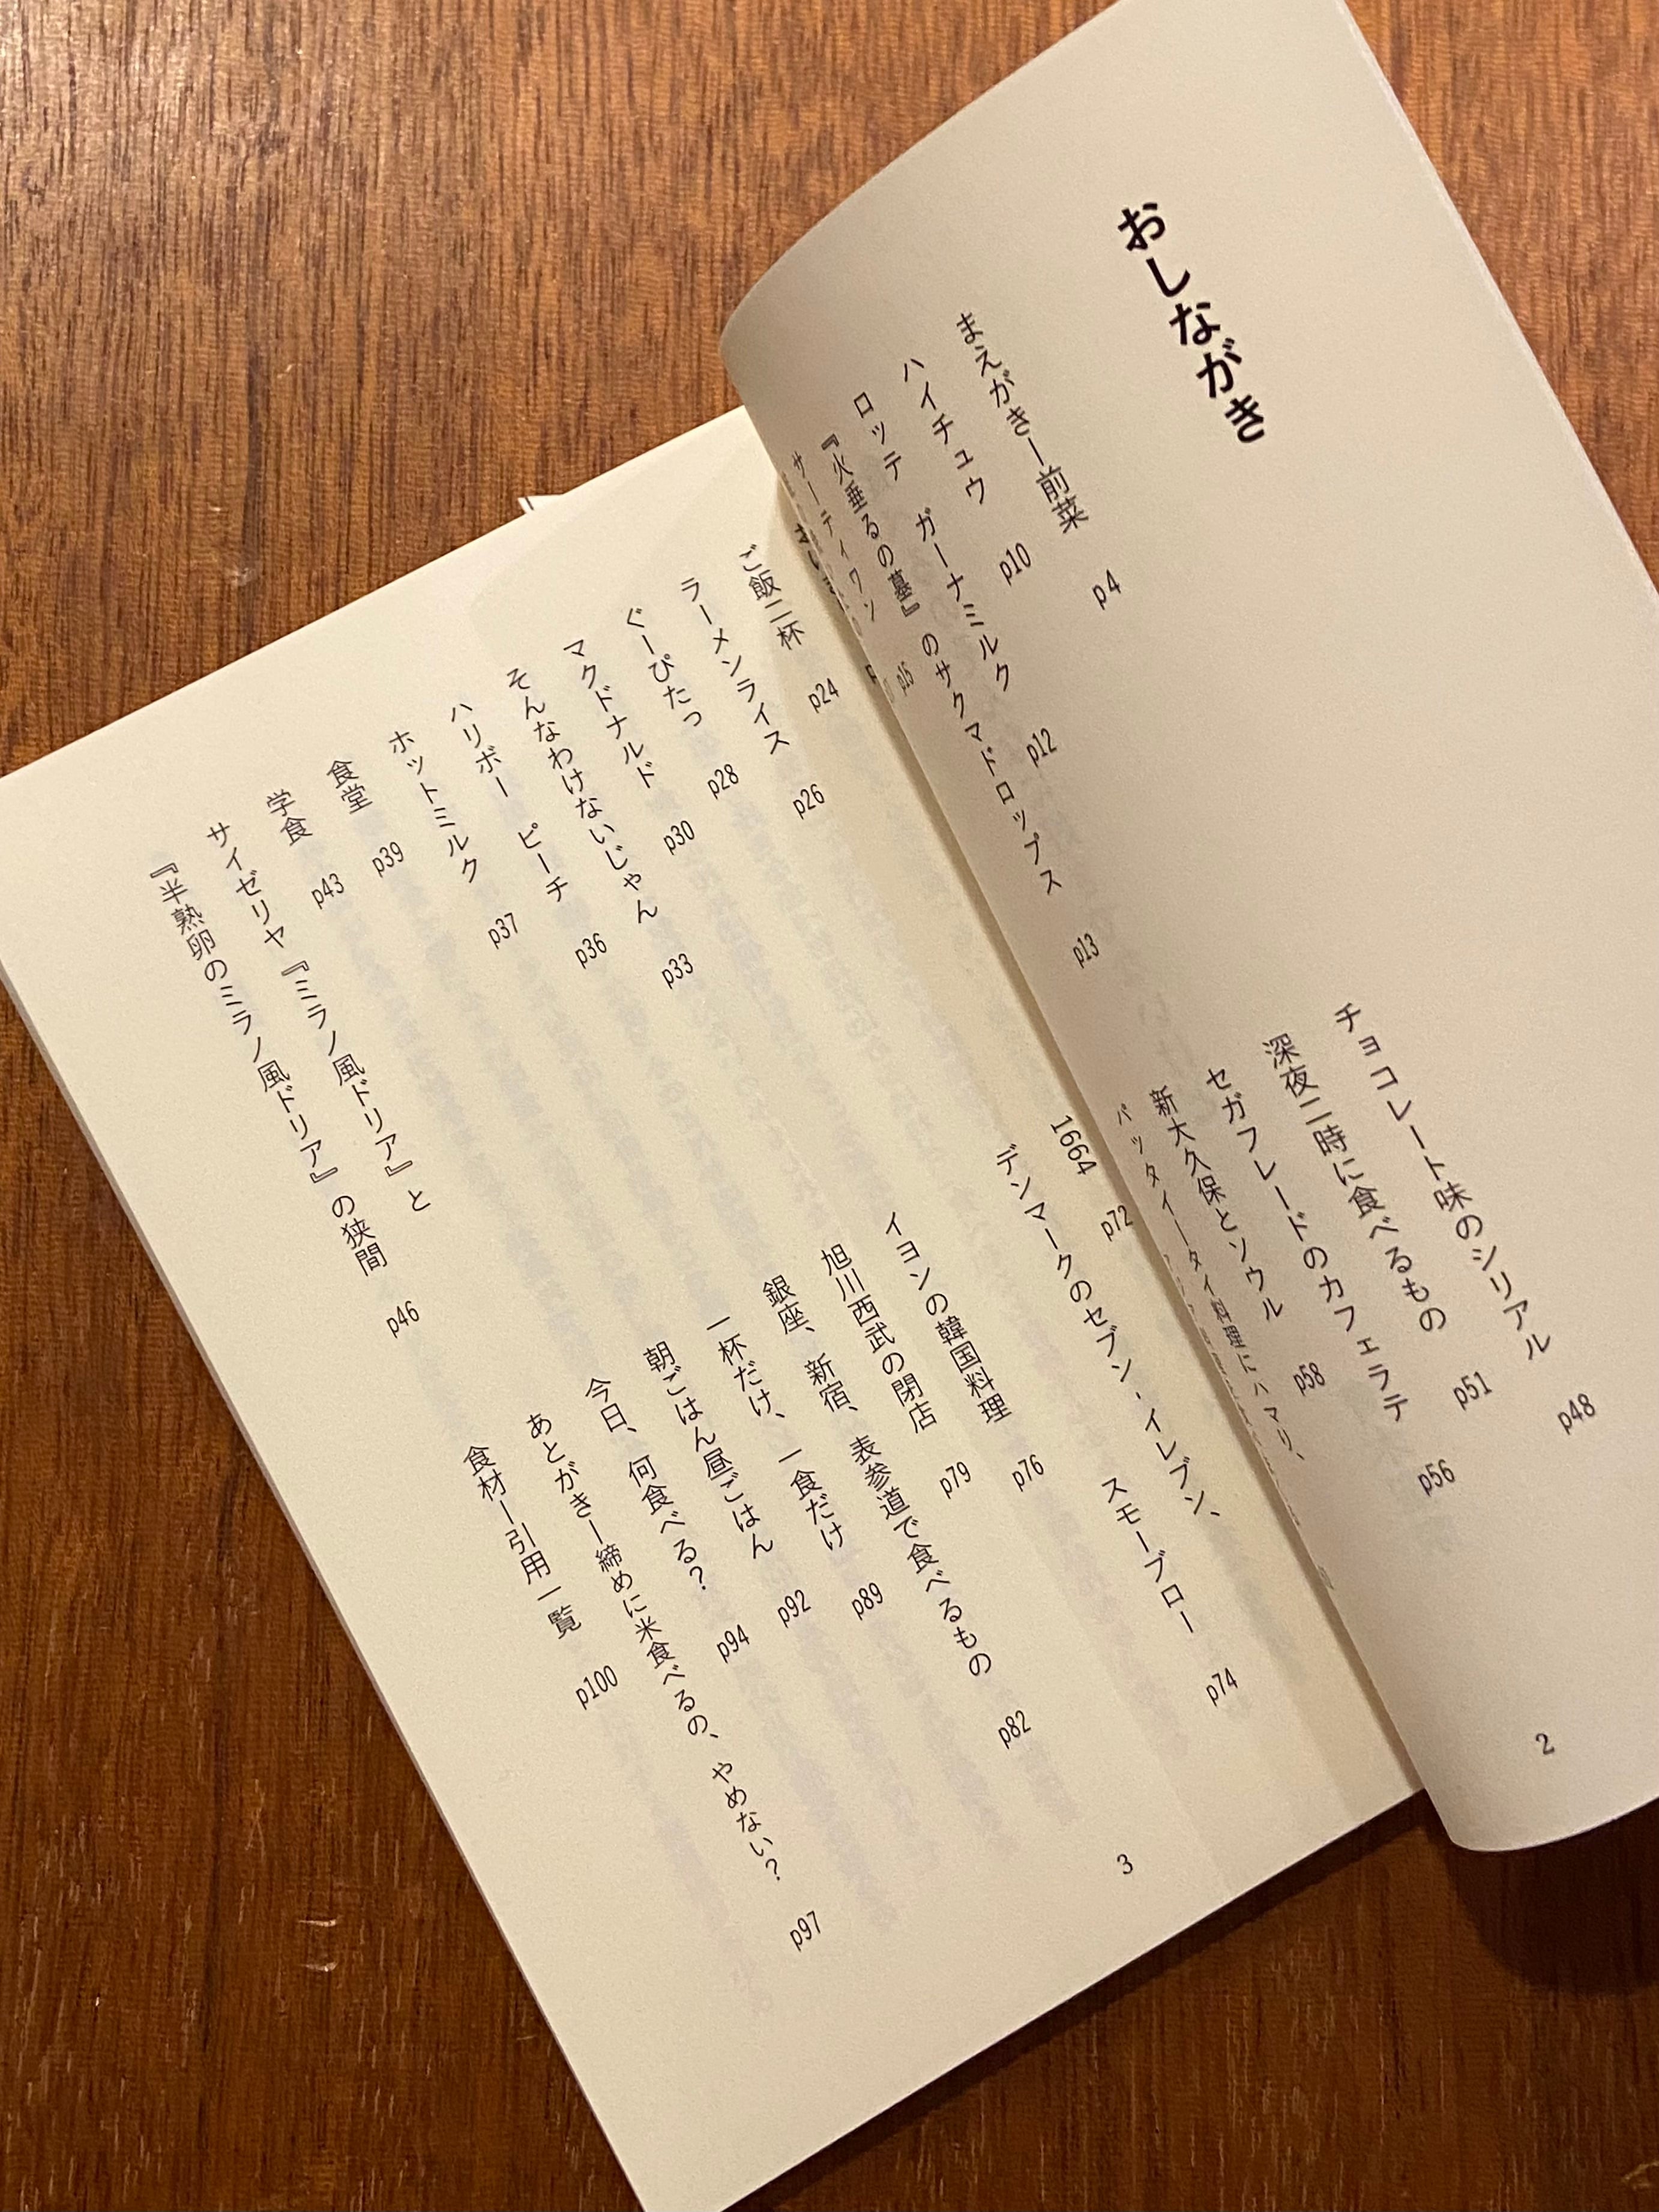 おしながき
まえがきー前菜 p4
ハイチュウ p10
ロッテ ガーナミルク p12
『火垂るの墓』のサクマドロップス p13
サーティワン p15
チョコレート味のシリアル p48
深夜二時に食べるもの p51
セガフレードのカフェラテ p56
新大久保とソウル p58
パッタイータイ料理にハマり、
2
ご飯二杯 p24
ラーメンライス p26
ぐーぴたっ p28
マクドナルド p30
そんなわけないじゃん p33
ハリボー ピーチ p36
ホットミルク p37
食堂 p39
学食 p43
サイゼリヤ『ミラノ風ドリア』と
『半熟卵のミラノ風ドリア』の狭間 p46
1664 p72
デンマークのセブン-イレブン、
スモーブロー p74
イヨンの韓国料理 p76
旭川西武の閉店 p79
銀座、新宿、表参道で食べるもの p82
一杯だけ、一食だけ p89
朝ごはん昼ごはん p92
今日、何食べる？ p94
あとがきー締めに米食べるの、やめない？ p97
食材ー引用一覧 p100
3